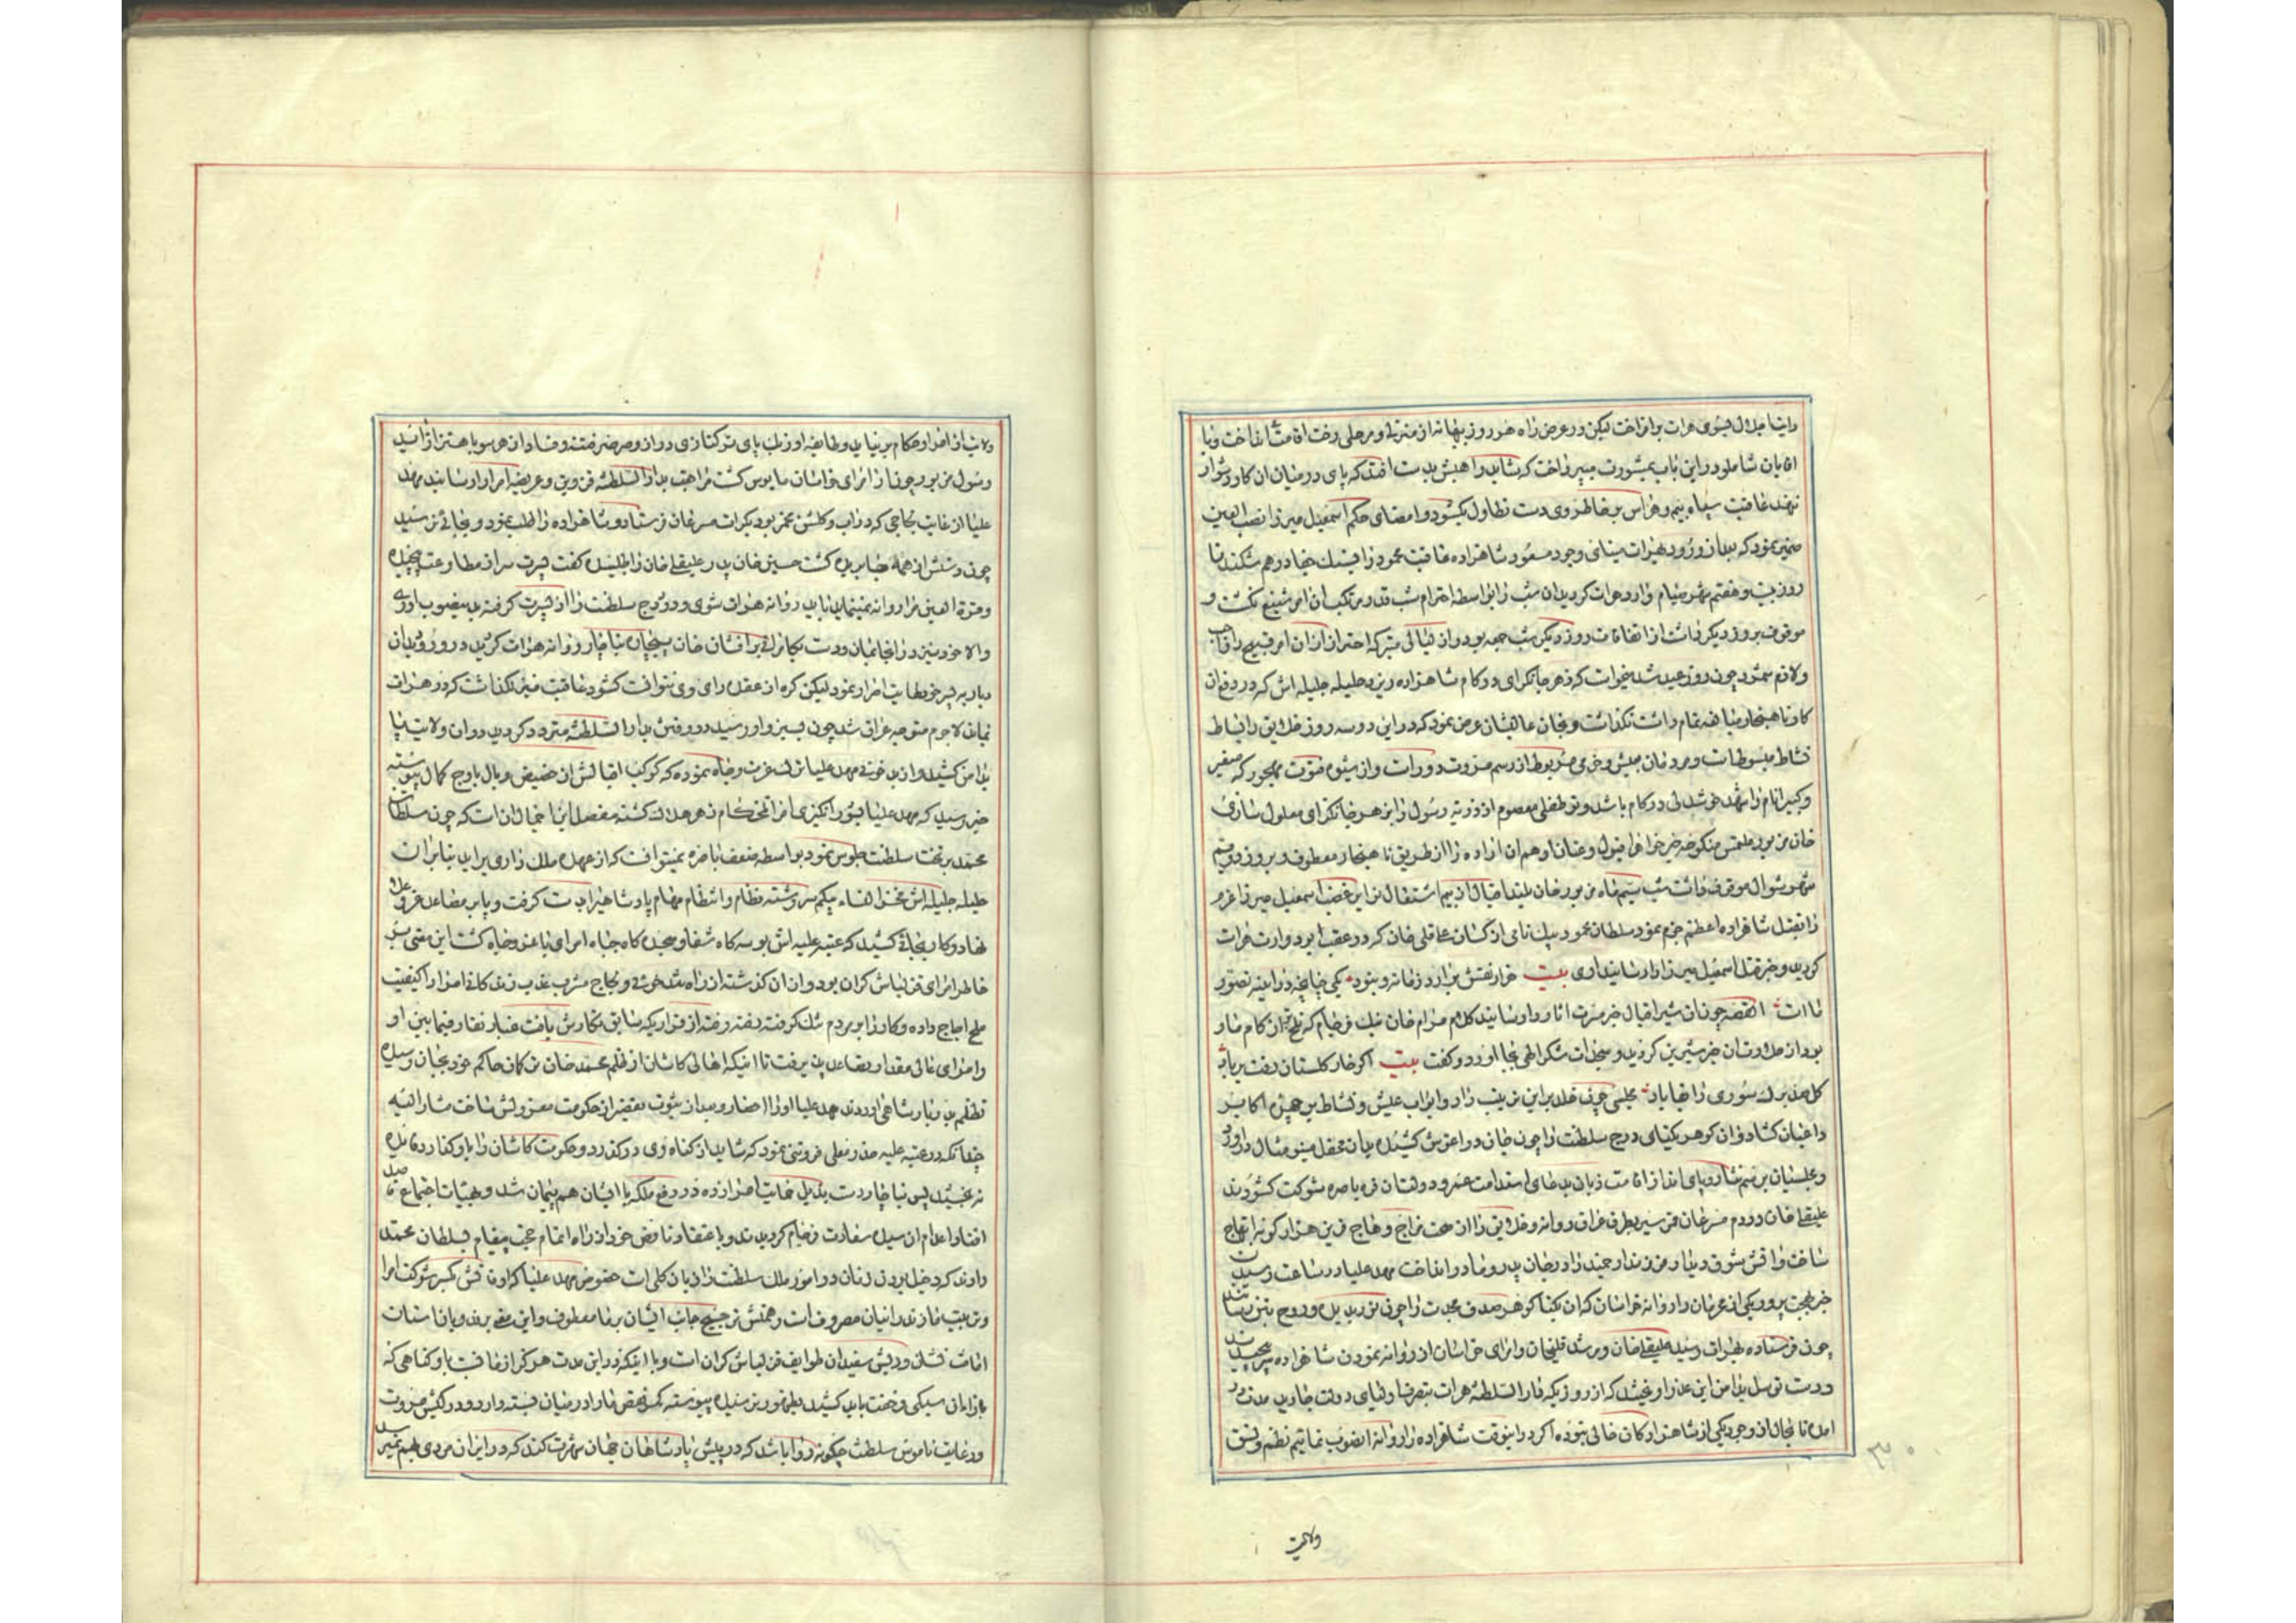 رایت اجلال بسوی هرات برافراخت لیکن در عرض راه هر روز بهانه از منزلی و مرحلی رخت اقامت انداخت و با
اعیان شاملو در این باب بمشورت میپرداخت که شاید راهیش بدست افتد که پای در میان آن کار دشوار
نهند عاقبت سپاه بیم و هراس بر خاطر وی دست تطاول بگشود و امضای حکم اسمعیل میرزا نصب العین
ضمیر نمود که بعد از ورود بهرات مینای وجود مسعود شاهزاده عاقبت محمود را بسنک جفا در هم شکند تا
روز بیست و هفتم شهر صیام وارد هرات گردید آن شب را بواسطه احترام شب قدر مرتکب آن امر شنیع نکشت و
موقوف بروز دیگر داشت از اتفاقات روز دیگر شب جمعه بود و از لیالی متبرکه احتراز از آن امر قبیح را واجب
و لازم شمرد چون روز عید شد میخواست که زهر جانگزای در کام شاهزاده ریزد حلیله جلیله اش که در دفع آن
کار ناهنجار مبالغه تمام داشت نگذاشت و بخان عالیشان عرض نمود که در این دو سه روز خلایق را بساط
نشاط مبسوط است و مردمان بعیش و خرمی مربوط از رسم مروت دور است و از شیوه فتوت مهجور که صغیر
و کبیر انام را شهد خوشدلی در کام باشد و تو طفلی معصوم از ذریه رسول را بزهر جانگزای معلول سازی
خان مزبور ملتمس منکوحه خیرخواه را قبول و عنان اوهم آن اراده را از طریق ناهنجار معطوف و بروز دویم
شهر شوال موقوف داشت شب سیم ماه مزبور خان بلند اقبال از بیم اشتعال نوایر غضب اسمعیل میرزا عزم
را بقتل شاهزاده اعظم جزم نمود سلطان محمود بیک نامی از کسان علیقلی خان که در عقب بود وارد هرات
گردید و خبر قتل اسمعیل میرزا را رسانید آری بیت هزار نقش برآرد زمانه و نبود یکی چنانچه در آینه تصور
ما است القصه چون آن بشیر اقبال خبر مسرت آثار را رسانید کلام مرام خان نیک فرجام که تلخ تر از کام مار
بود از حلاوت آن خبر شیرین گردید و سجدات شکر الهی بجا آورد و گفت بیت اگر خار گلستان رفت بر باد
گل صد برگ سوری را بقا باد مجلسی چون خلد برین تزیین داد و ابواب عیش و نشاط بر چهره اکابر
و اعیان گشاد و آن گوهر یکتای درج سلطنت را چون جان در آغوش کشیده بدان محفل مینو مثال در آورد
و مجلسیان برسم نثار و پای انداز قامت زبان بدعای استدامت عمر و دولت آن قره باصره شوکت گشودند
علیقلی خان در دم مسرعان قمر سیر بطرف عراق روانه و خلایق را از صحت مزاج وهاج قرین هزار گونه ابتهاج
ساخت و آتش شوق دیدار فرزند ارجمند را در جان پدر و مادر انداخت مهد علیا در ساعت رسیدن
خبر بهجت پرور یکی از عزیزان را روانه خراسان که آن یکتا گوهر صدف مجدت را چون نور بدیده و روح بتن رسانند
چون فرستاده بهرات رسید علیقلی خان و مرشد قلیخان و امرای خراسان از روانه نمودن شاهزاده سر پیچیدند
و دست توسل بدامن این عذر آویختند که از روزیکه دارالسلطنه هرات بتصرف اولیای دولت جاوید مدت در
آمده تا بحال از وجود یکی از شاهزادگان خالی نبوده اگر در اینوقت شاهزاده را روانه آنصوب نمائیم نظم و نسق
ولایت
ولایت از امرا و حکام برنیاید و طایفه اوزبک پای ترکتازی دراز و صرصر فتنه و فساد از هر سو باهتزاز آید
رسول مزبور چون از امرای خراسان مایوس گشت مراجعت بدارالسلطنه قزوین و عریضه امرا را رسانید مهد
علیا از غایت لجاجی که در آب و گلش مخمر بود بکرات مسرعان فرستاد و شاهزاده را طلب نمود و بجائی نرسید
چون دستش از همه جا بریده گشت حسین خان پدر علیقلی خان را طلبیده گفت پسرت سر از مطاوعت پیچیده
و قرة العین مرا روانه نمینماید باید روانه هرات شوی و در درج سلطنت را از پسرت گرفته بدینصوب آوری
والا خود نیز در آنجا بمان و دست یگانگی برافشان خان بیجان ناچار روانه هرات گردید در ورود بدان
دیار به پسر خود غایت اصرار نمود لیکن گره از عقده رای وی نتوانست گشود عاقبت نیز نگذاشت که در هرات
نماند لاجرم متوجه عراق شد چون بسبزوار رسید در رفتن بدارالسلطنه متردد گردید در آن ولایت پا
بدامن کشیده و از بدخوئی مهد علیا ترک عزت و جاه نموده که کوکب اقبالش از حضیض وبال باوج کمال پیوسته
خبر رسید که مهد علیا بشورانگیزی امرا تلخکام زهر هلاک گشته مفصل این اجمال آن است که چون سلطان
محمد بر تخت سلطنت جلوس نمود بواسطه ضعف باصره نمیتوانست که از عهده ملک داری برآید بنابر آن
حلیله جلیله اش فخر النساء بیگم سر رشته نظام و انتظام مهام پادشاهی را بدست گرفت و پا بر مصاعد عز و علا
نهاد و کار بجائی کشید که عتبه علیه اش بوسه گاه شفاه و سجده گاه جباه امرای با عز و جاه گشت این معنی بر
خاطر امرای قزلباش گران بود و از آن گذشته از راه تندخوئی و لجاج مشرب عذب زندگانی امرا را کیفیت
ملح اجاج داده و کار را بر مردم تنگ گرفته رفته رفته از قراریکه سابق نگارش یافت غبار نقار فیمابین او
و امرای عالی مقدار تصاعد پذیرفت تا اینکه اهالی کاشان از ظلم محمد خان ترکمان حاکم خود بجان رسیده
تظلم بدربار شاهی آوردند مهد علیا او را احضار و بعد از ثبوت تقصیر از حکومت معزولش ساخت مشارالیه
چندانکه در عتبه علیه صدر معلی فروتنی نمود که شاید از گناه وی در گذرد و حکومت کاشان را باو گذارد فایده
نه بخشید پس ناچار دست بذیل حمایت امرا زده در دفع ملکه با ایشان هم پیمان شد و بهیات اجتماع قاصد
افنا و اعدام آن سیده سعادت فرجام گردیدند و باعتقاد ناقص خود از راه اتمام حجت پیغام بسلطان محمد
دادند که دخیل بودن زنان در امور ملک سلطنت را زیان کلی است خصوص مهد علیا که اوقاتش بکسر شوکت امرا
و تربیت مازندرانیان مصروف است و همتش ترجیح جانب ایشان بر ما معطوف و این معنی بر مردمان استاد
اناث نشان و ریش سفیدان طوایف قزلباش گران است و با اینکه در این مدت هرگز از ما نسبت باو گناهی که
بازاء آن سبکی و خفت باید کشید بظهور نرسیده پیوسته کمر نقض ما را در میان بسته دارد و در کیش مروت
و رعایت ناموس سلطنت چگونه روا باشد که در پیش پادشاهان جهان شهرت کند که در ایران مردی بهم نمیرسد